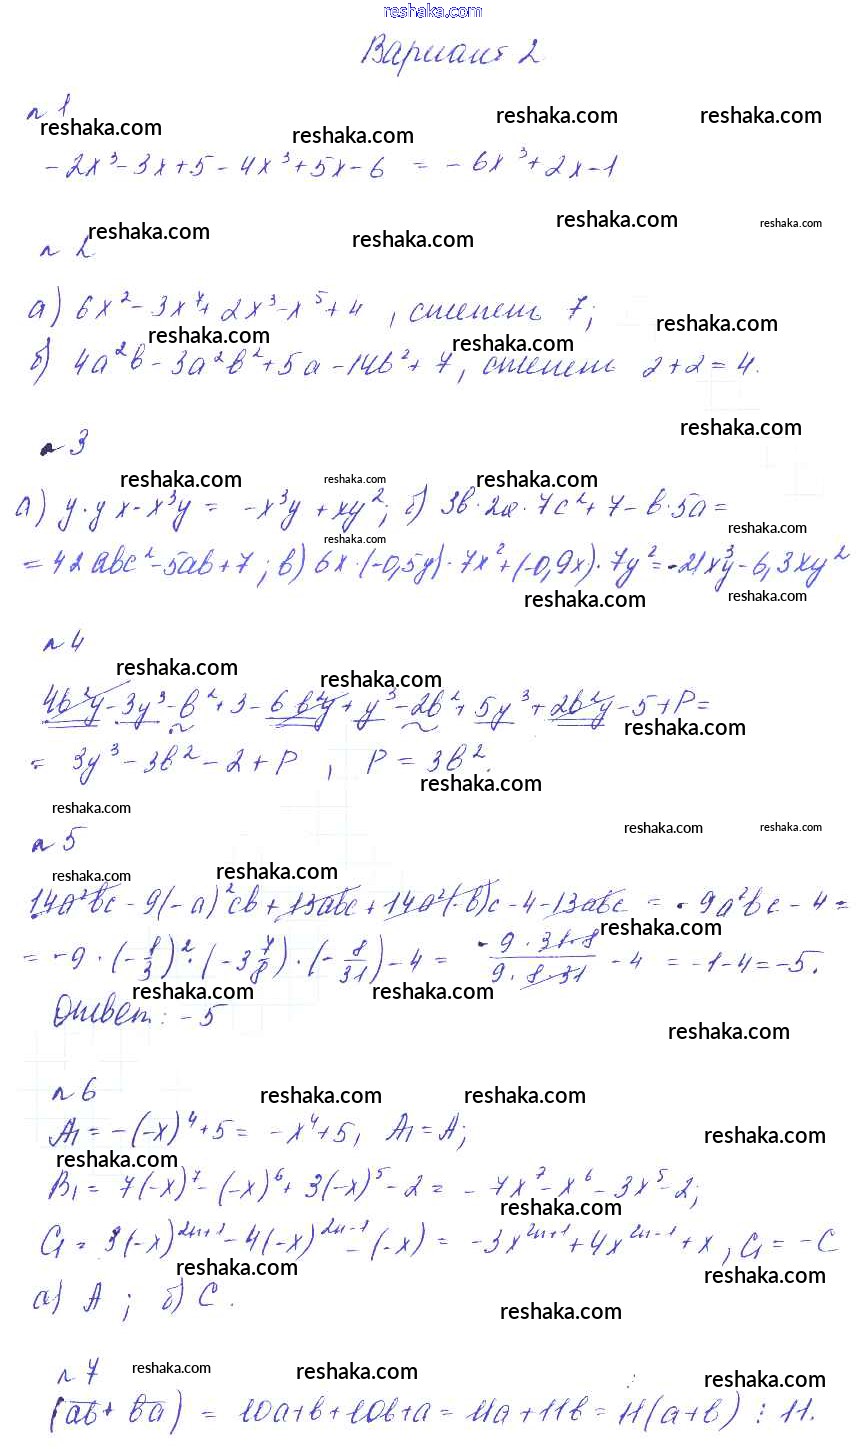 reshaka.com
Вариант 2
n 1
reshaka.com reshaka.com reshaka.com reshaka.com
-2x³-3x+5-4x³+5x-6 = -6x³+2x-1
n 2
reshaka.com reshaka.com reshaka.com reshaka.com
а) 6x²-3x⁷+2x³-x⁵+4, степень 7;
reshaka.com reshaka.com reshaka.com
б) 4a²b-3a²b²+5a-14b²+7, степень 2+2=4.
reshaka.com
n 3
reshaka.com reshaka.com reshaka.com
а) y·yx-x³y = -x³y+xy²; б) 3b·2a·7c²+7-b·5a=
reshaka.com reshaka.com
=42abc²-5ab+7; в) 6x·(-0,5y)·7x²+(-0,9x)·7y²=-21x³y-6,3xy²
reshaka.com reshaka.com
n 4
reshaka.com reshaka.com
4b²y-3y³-b²+3-6b²y+y³-2b²+5y³+2b²y-5+P=
reshaka.com
= 3y³-3b²-2+P, P=3b².
reshaka.com
reshaka.com reshaka.com reshaka.com
n 5
reshaka.com reshaka.com
14a²bc-9(-a)²cb+13abc+14a²(-b)c-4-13abc = -9a²bc-4=
reshaka.com
= -9·(-1/3)²·(-3 7/8)·(-8/31)-4 = -9·31·8/9·8·31 -4 = -1-4=-5.
reshaka.com reshaka.com
Ответ: -5
reshaka.com
n 6
reshaka.com reshaka.com
A₁=-(-x)⁴+5= -x⁴+5, A₁=A;
reshaka.com
reshaka.com
B₁= 7(-x)⁷-(-x)⁶+3(-x)⁵-2= -7x⁷-x⁶-3x⁵-2;
reshaka.com
C₁= 3(-x)²ⁿ⁺¹-4(-x)²ⁿ⁻¹-(-x)= -3x²ⁿ⁺¹+4x²ⁿ⁻¹+x, C₁=-C
reshaka.com reshaka.com
а) A; б) C.
reshaka.com
n 7
reshaka.com reshaka.com reshaka.com
(ab+ba) = 10a+b+10b+a= 11a+11b= 11(a+b) ⋮ 11.